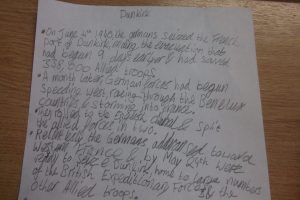 Dunkirk
• On June 4th 1940, the Germans seized the French
port of Dunkirk, ending the evacuation that
had began 9 days earlier & had saved
338,000 Allied troops.
• A month later, German forces had begun
speeding west, racing through the Benelux
countries & storming into France.
They to the English Channel & split
the allied forces in two.
• Relentlessly the Germans advanced toward
Western France & by May 25th were
ready to take Dunkirk, home to large numbers
of the British Expeditionary Forces & the
other Allied troops.